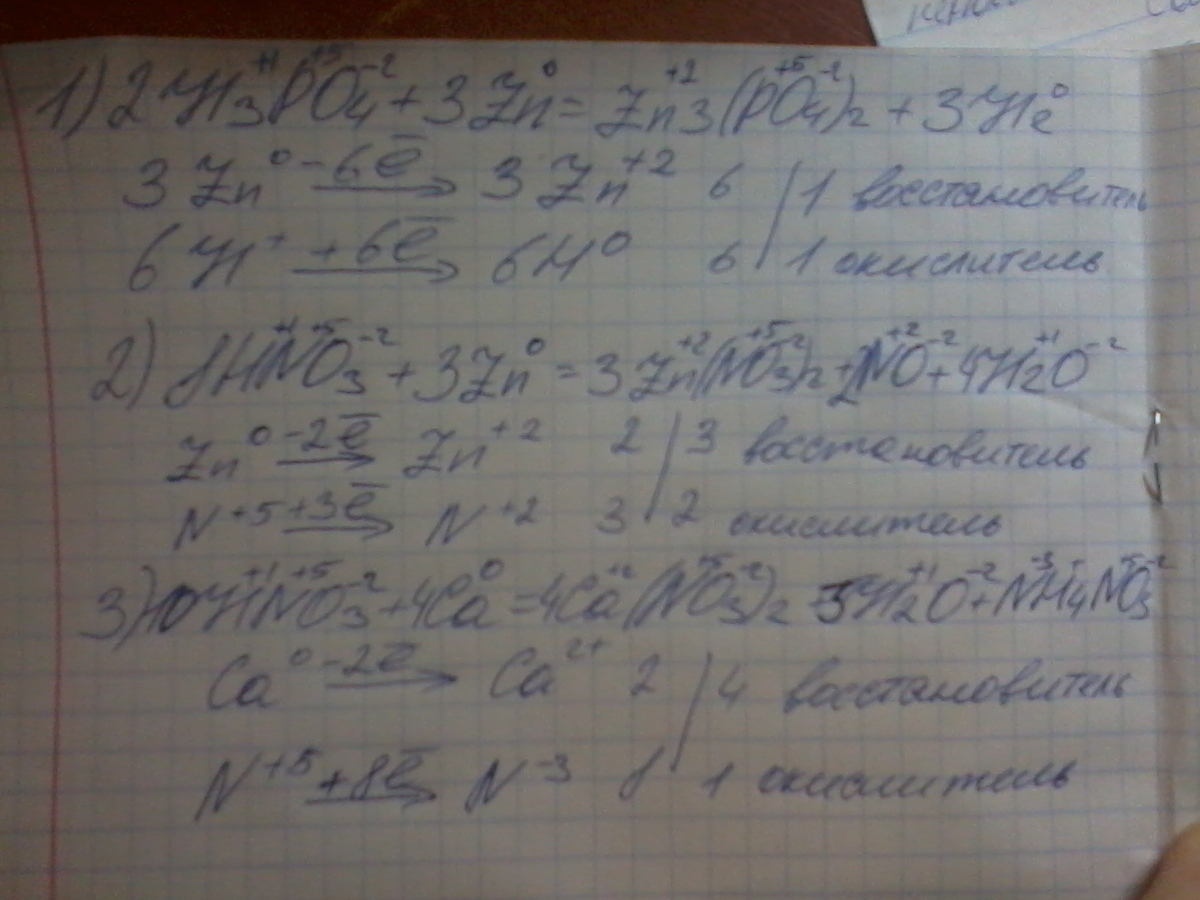 1) 2H₃⁺¹P⁺⁵O₄⁻² + 3Zn⁰ = Zn₃⁺²(P⁺⁵O₄⁻²)₂ + 3H₂⁰
3Zn⁰ −6e̅→ 3Zn⁺² 6 / 1 восстановитель
6H⁺ +6e̅→ 6H⁰ 6 / 1 окислитель
2) 8H⁺¹N⁺⁵O₃⁻² + 3Zn⁰ = 3Zn⁺²(N⁺⁵O₃⁻²)₂ + 2N⁺²O⁻² + 4H₂⁺¹O⁻²
Zn⁰ −2e̅→ Zn⁺² 2 / 3 восстановитель
N⁺⁵ +3e̅→ N⁺² 3 / 2 окислитель
3) 10H⁺¹N⁺⁵O₃⁻² + 4Ca⁰ = 4Ca⁺²(N⁺⁵O₃⁻²)₂ 3H₂⁺¹O⁻² + N⁻³H₄N⁺⁵O₃⁻²
Ca⁰ −2e̅→ Ca²⁺ 2 / 4 восстановитель
N⁺⁵ +8e̅→ N⁻³ 8 / 1 окислитель